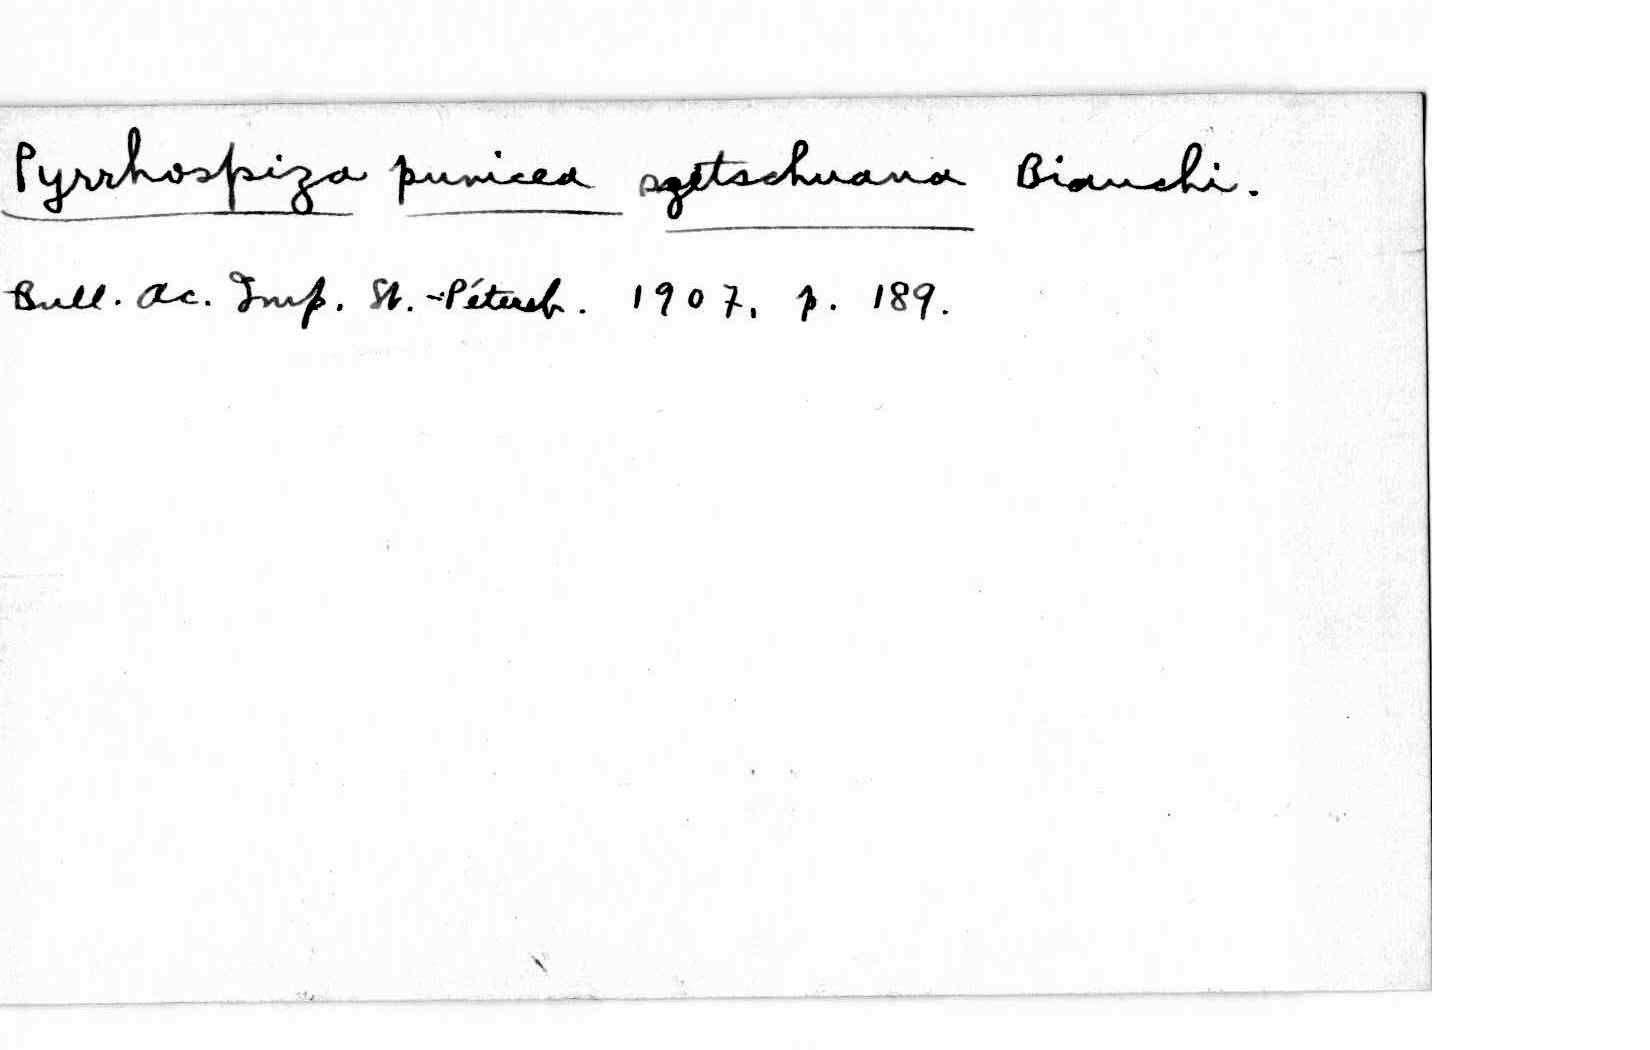 Pyrrhospiza punicea szetschuana Bianchi.
Bull. Ac. Imp. St.-Pétersb. 1907, p. 189.